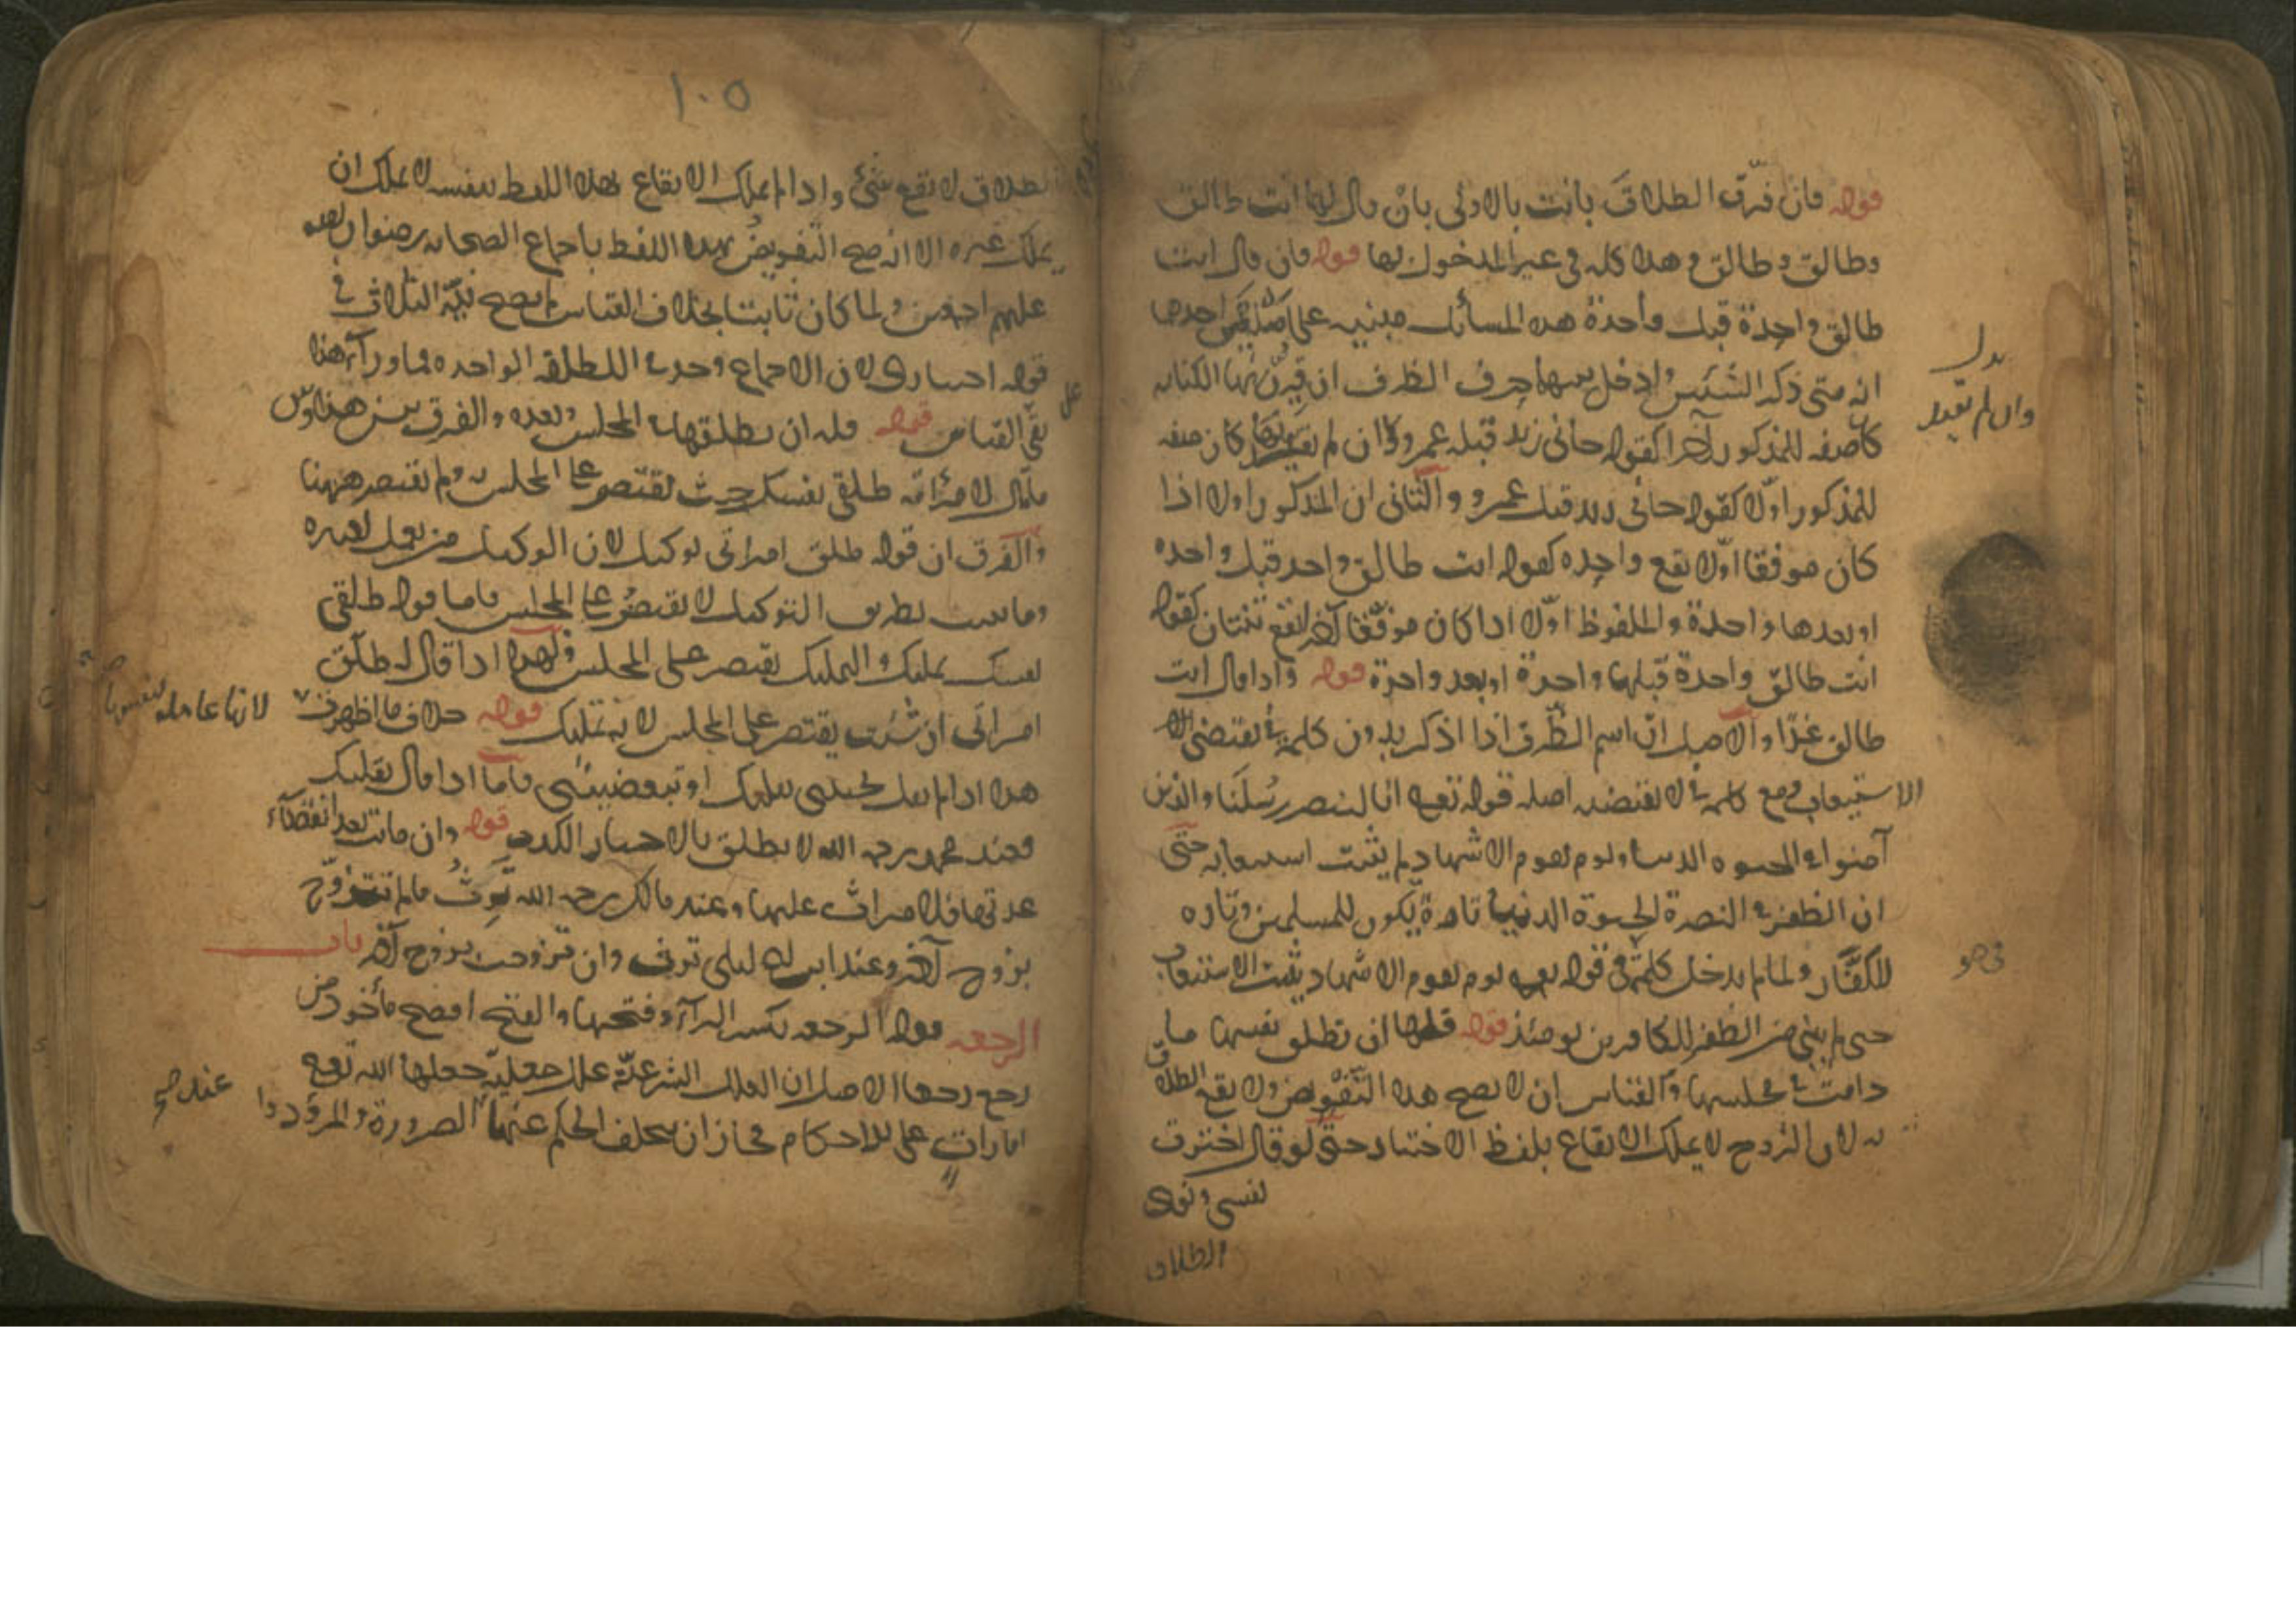 قوله فان فرّق الطلاقَ بانت بالاولى بانْ قال لها انت طالق
وطالق وطالق وهذا كله في غير المدخول بها قوله فان قال انت
طالق واحدة قبل واحدة هذه المسائل مبنيه على اصلين احدهما
انه متى ذكر الشئين وادخل بينهما حرف الظرف ان قرن بها الكنايه
كان صفه للمذكور آخرا كقوله جانى زيد قبله عمرو وان لم كان صفه
للمذكور اوّلا كقوله جانى زيد قبل عمرو والثانى ان المذكور اولا اذا
كان موقعا اوّلا يقع واحده كقوله انت طالق واحد قبل واحده
او بعدها واحدة والملفوظ اوّلا اذا كان موقّعا آخرا يقع ثنتان كقوله
انت طالق واحدة قبلها واحدة او بعد واحدة قوله واذا قال انت
طالق غدًا والاصل انّ اسم الظّرف اذا ذكر بدون كلمة في يقتضى
الاستيعاب ومع كلمة في لا يقتضيه اصله قوله تعه انا لننصر رسُلَنَا والذين
آمنوا في الحيوه الدنيا ويوم يقوم الاشهاد لم يثبت استيعابه حتّى
ان الظفر و النصرة في الحيوة الدنيا تارة يكون للمسلمين وتاره
للكفّار ولما لم يدخل كلمة في قوله تعه يوم يقوم الاشهاد يثبت الاستيعاب
حتى لم يبق من الظفر للكافرين يومئذ قوله فلها ان تطلق نفسها ما
دامت في مجلسها والقياس ان لا يصح هذا التّفويض ولا يقع الطلاق
به لان الزوج لا يملك الايقاع بلفظ الاختيار حتّى لو قال اخترت
نفسى ونوى
الطلاق
بدل
وان لم يقيد
فى هو
١٠٥
الطلاق لا يقع شئ واذا لم يملك الايقاع بهذا اللفظ بنفسه لا يملك ان
يملك غيره الا انه صح التّفويضُ بهذا اللفظ باجماع الصحابه رضوان الله
عليهم اجمعين ولما كان ثابتا بخلاف القياس لم يصح نيّة الثلاث في
قوله اختارى لان الاجماع وجد في الطلقه الواحده فما ورآء هذا
على
بقّى القياس قوله فله ان يطلقها في المجلس وبعده والفرق بين هذا وبين
ما قال لامرأته طلقى نفسك حيث يقتصر على المجلس ولم يقتصر ههنا
والفرق ان قوله طلق امراتى توكيل لان الوكيل من يعمل لغيره
وما يثبت بطريق التوكيل لا يقتصرُ على المجلس فاما قوله طلقى
نفسك تمليك والتمليك يقتصر على المجلس ولهذا اذا قال له طلّق
امراتى ان شئت يقتصر على المجلس لانه تمليك قوله خلاف ما اظهرت
لانها عامله لنفسها
هذا اذا لم يقل تحبينى بقلبك او تبغضيننى فاما اذا قال بقلبك
فعند محمد رحمه الله لا يطلق بالاخبار الكذب قوله وان مات بعد انقضآء
عدتها فلا ميراث عليها وعند مالك رحمه الله تَرِثُ مالم تتزوّج
بزوج آخر وعند ابن ابى ليلى ترث وان تزوجت بزوج آخر باب
الرجعه قوله الرجعه بكسر الرآء وفتحها والفتح افصح مأخوذ من
رجع رجعا الاصل ان العلل الشرعيّة علل جعليّة جعلها الله تعه
امارات على الاحكام فجاز ان يتخلف الحكم عنها الضرورة والمرؤ